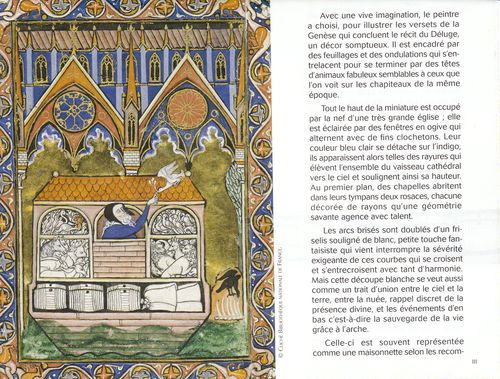 © CLICHÉ BIBLIOTHÈQUE NATIONALE DE FRANCE.
Avec une vive imagination, le peintre
a choisi, pour illustrer les versets de la
Genèse qui concluent le récit du Déluge,
un décor somptueux. Il est encadré par
des feuillages et des ondulations qui s'en-
trelacent pour se terminer par des têtes
d'animaux fabuleux semblables à ceux que
l'on voit sur les chapiteaux de la même
époque.
Tout le haut de la miniature est occupé
par la nef d'une très grande église ; elle
est éclairée par des fenêtres en ogive qui
alternent avec de fins clochetons. Leur
couleur bleu clair se détache sur l'indigo,
ils apparaissent alors telles des rayures qui
élèvent l'ensemble du vaisseau cathédral
vers le ciel et soulignent ainsi sa hauteur.
Au premier plan, des chapelles abritent
dans leurs tympans deux rosaces, chacune
décorée de rayons qu'une géométrie
savante agence avec talent.
Les arcs brisés sont doublés d'un fri-
selis souligné de blanc, petite touche fan-
taisiste qui vient interrompre la sévérité
exigeante de ces courbes qui se croisent
et s'entrecroisent avec tant d'harmonie.
Mais cette découpe blanche se veut aussi
comme un trait d'union entre le ciel et la
terre, entre la nuée, rappel discret de la
présence divine, et les événements d'en
bas c'est-à-dire la sauvegarde de la vie
grâce à l'arche.
Celle-ci est souvent représentée
comme une maisonnette selon les recom-
III